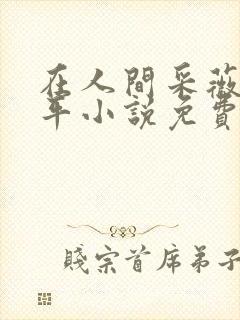 在人間采薇
年小說免費
賤宗首席弟子